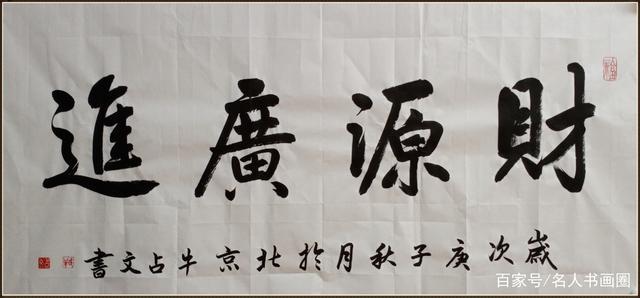 財源廣進
歲次庚子秋月於北京牛占文書
百家号/名人书画圈